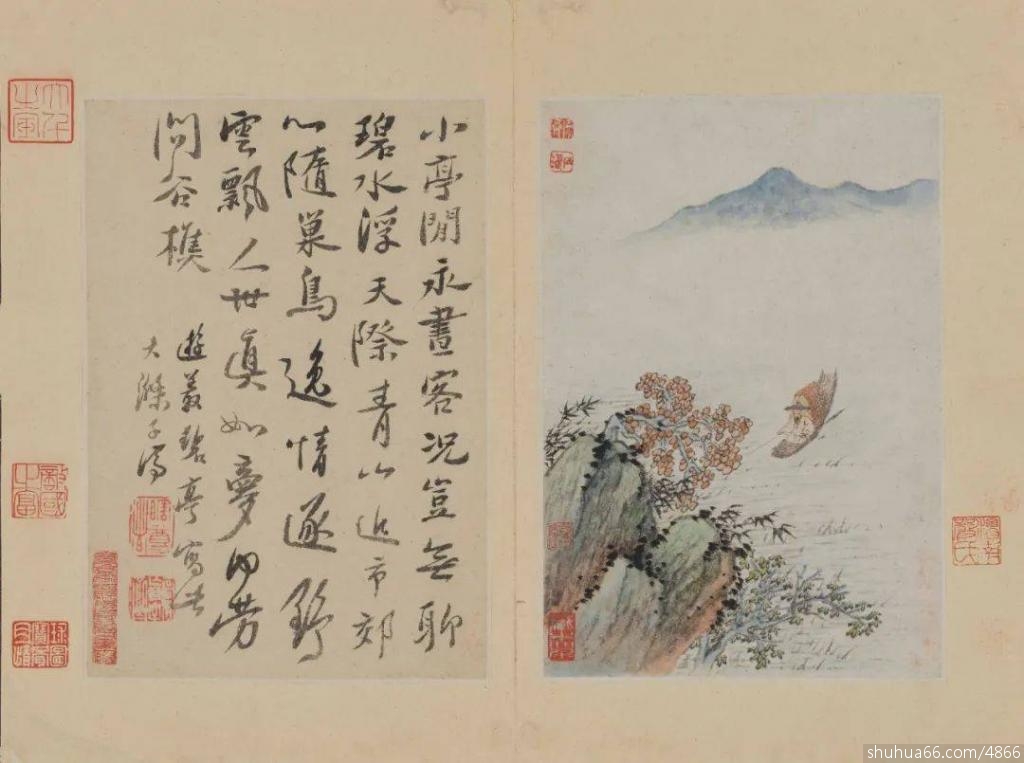 小亭閒永晝客況豈無聊
碧水浮天際青山近市郊
心隨巢鳥逸情逐野
雲飄人世眞如夢何勞
問谷樵
遊碧亭寫此
大滌子濟
shuhua66.com/4866